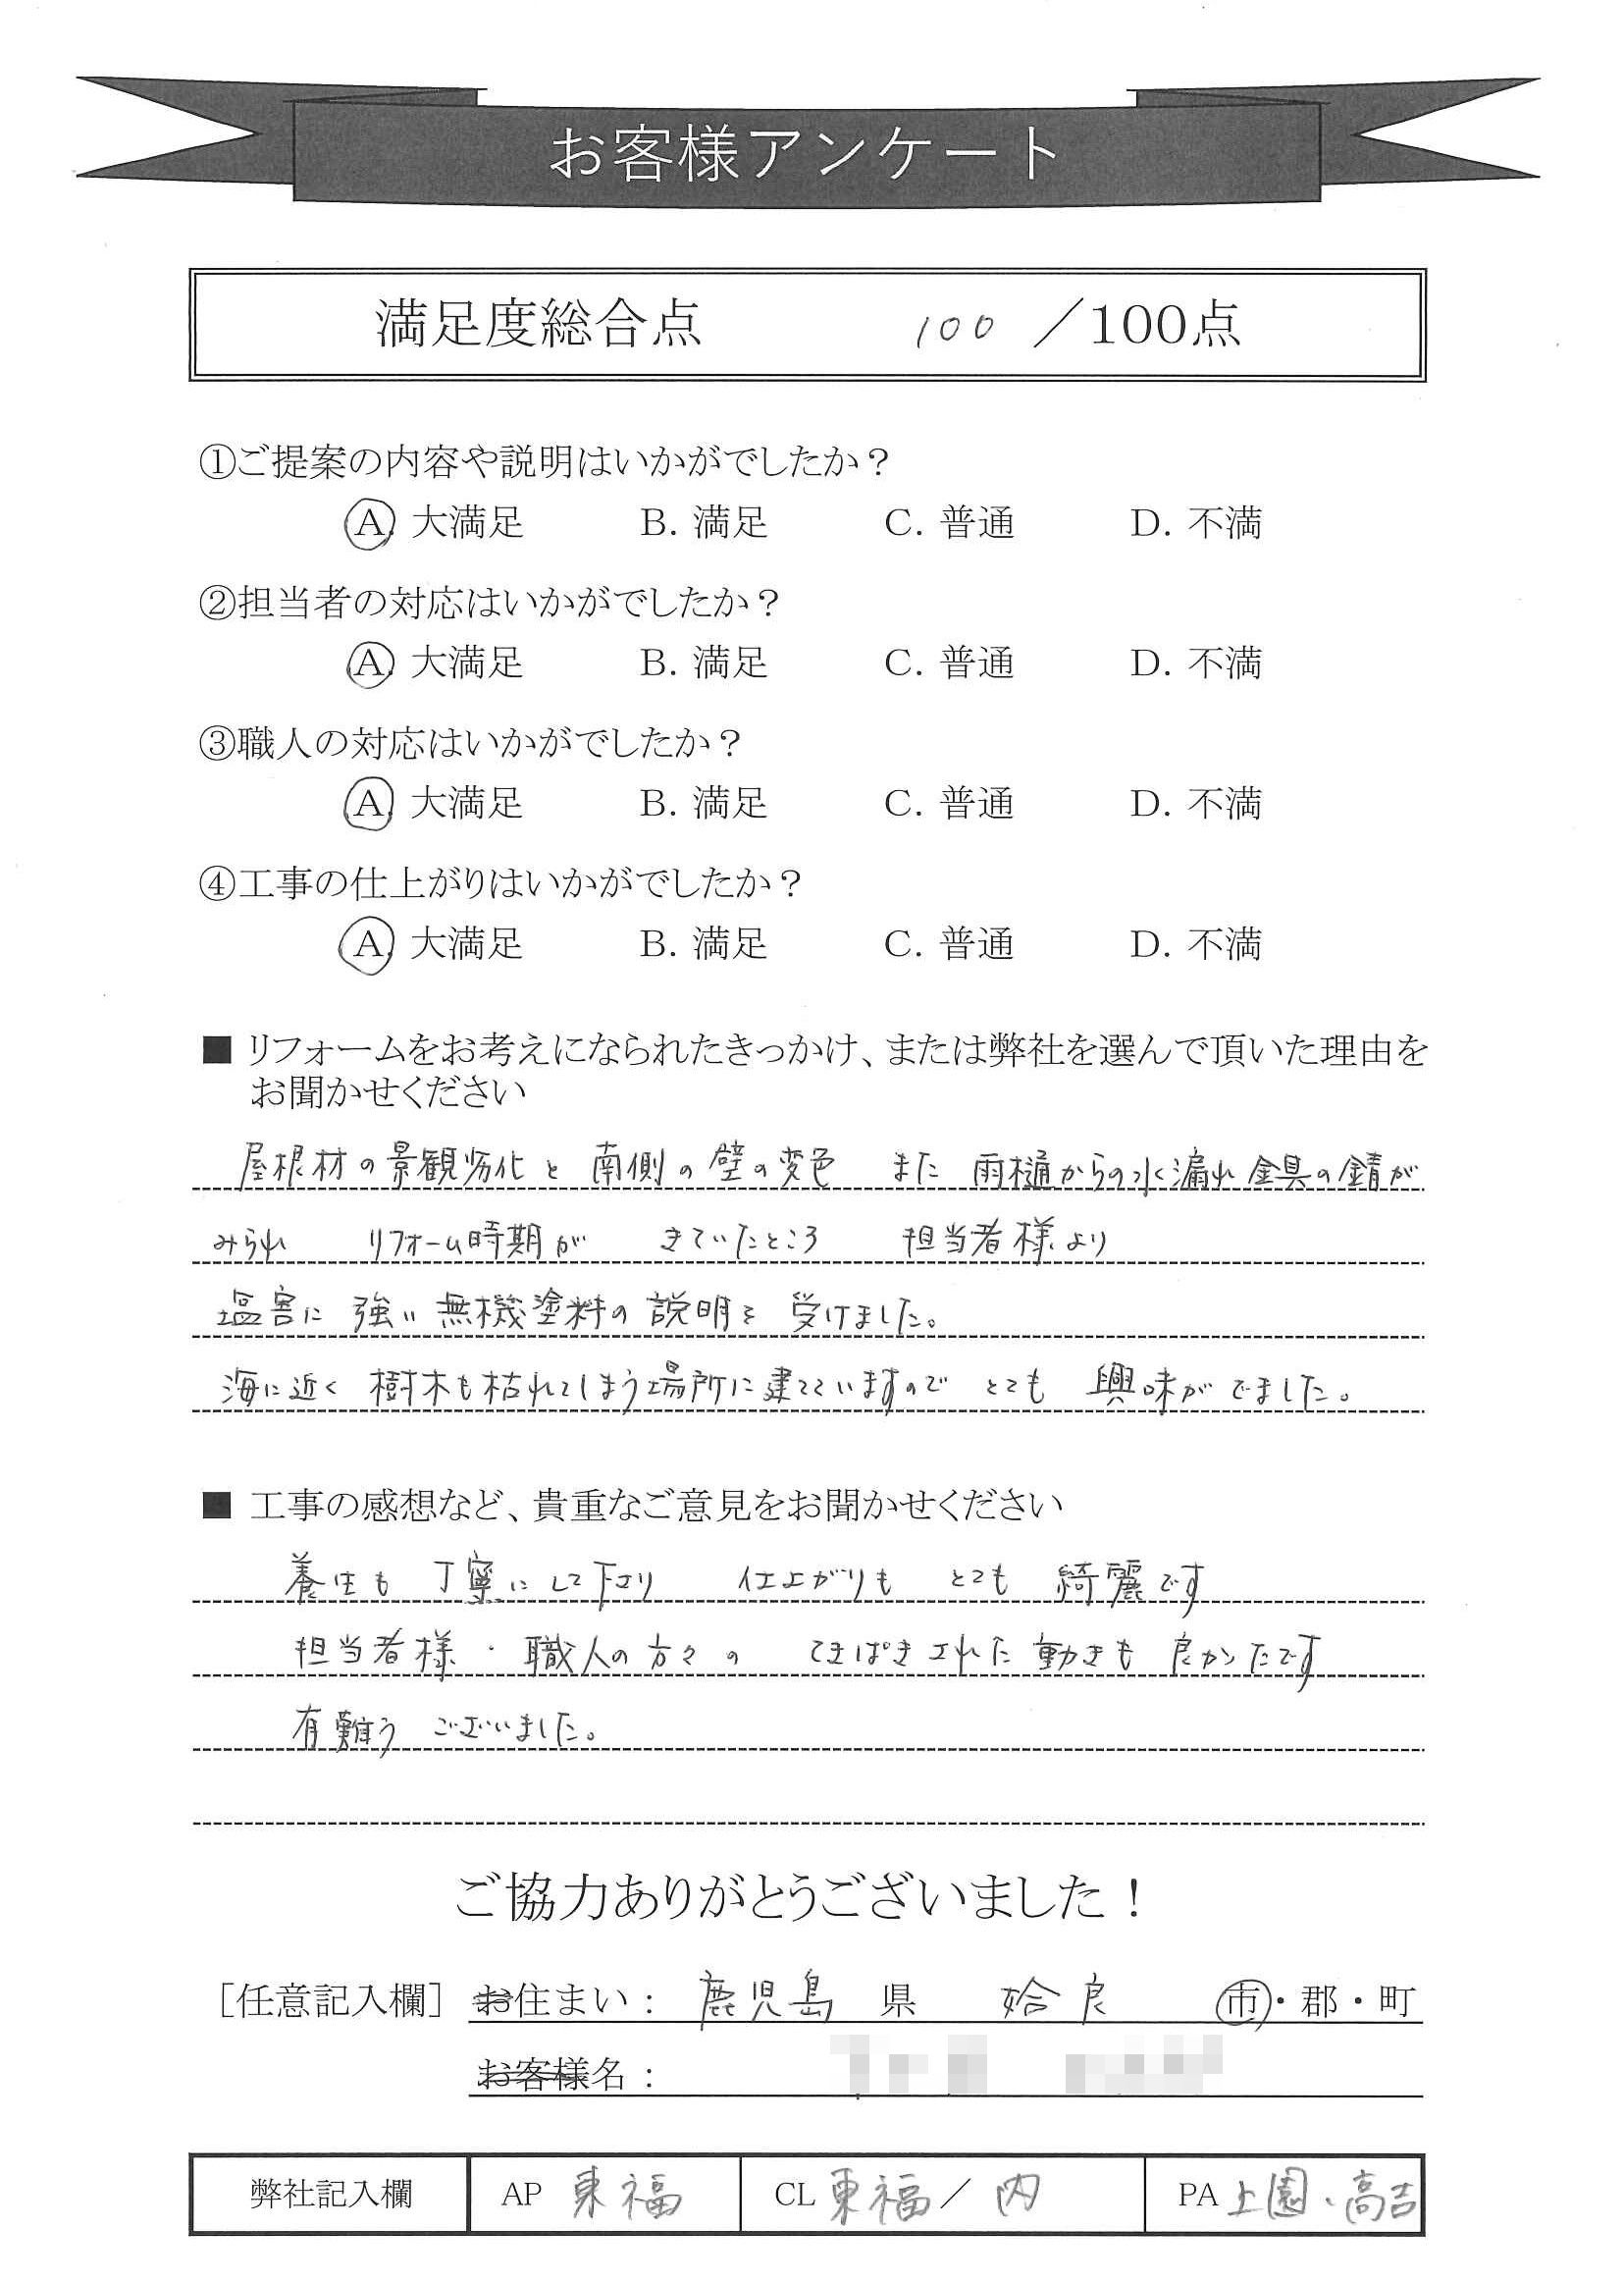 お客様アンケート
満足度総合点 100 ／100点
①ご提案の内容や説明はいかがでしたか？
A. 大満足 B. 満足 C. 普通 D. 不満
②担当者の対応はいかがでしたか？
A. 大満足 B. 満足 C. 普通 D. 不満
③職人の対応はいかがでしたか？
A. 大満足 B. 満足 C. 普通 D. 不満
④工事の仕上がりはいかがでしたか？
A. 大満足 B. 満足 C. 普通 D. 不満
■ リフォームをお考えになられたきっかけ、または弊社を選んで頂いた理由を
お聞かせください
屋根材の景観劣化と 南側の壁の変色 また 雨樋からの水漏れ金具の錆が
みられ リフォーム時期が きていたところ 担当者様より
塩害に 強い 無機塗料の 説明を 受けました。
海に近く 樹木も枯れてしまう場所に建てていますので とても 興味がでました。
■ 工事の感想など、貴重なご意見をお聞かせください
養生も 丁寧にして下さり 仕上がりも とても 綺麗です
担当者様・職人の方々の てきぱきされた動きも 良かったです
有難う ございました。
ご協力ありがとうございました！
［任意記入欄］ お住まい： 鹿児島 県 姶良 市・郡・町
お客様名：
弊社記入欄 AP 東福 CL 東福／内 PA 上園、高吉